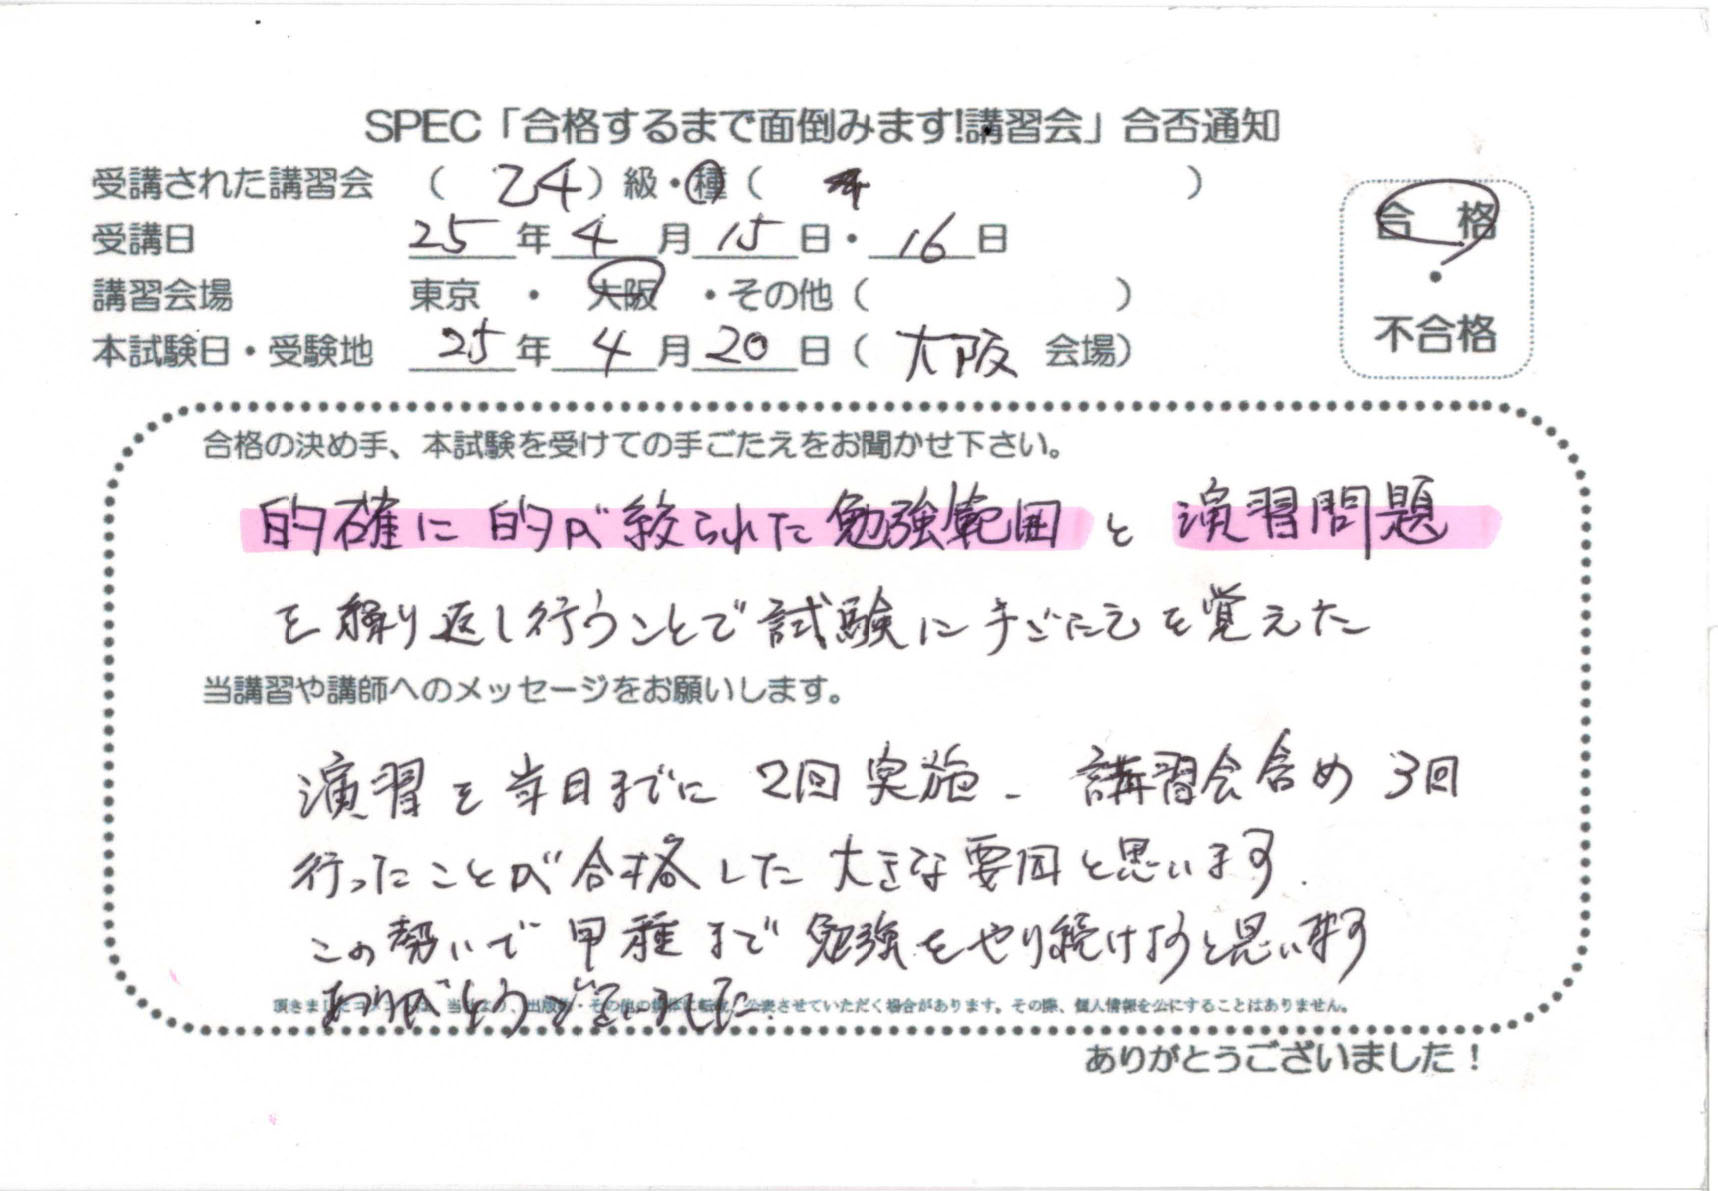 SPEC「合格するまで面倒みます!講習会」合否通知
受講された講習会 ( Z4 ) 級・種 ( )
受講日 25 年 4 月 15 日・16 日
講習会場 東京 ・ 大阪 ・その他 ( )
本試験日・受験地 25 年 4 月 20 日 ( 大阪 会場)
合 格
・
不合格
合格の決め手、本試験を受けての手ごたえをお聞かせ下さい。
的確に的が絞られた勉強範囲と演習問題
を繰り返し行うことで試験に手ごたえを覚えた
当講習や講師へのメッセージをお願いします。
演習を当日までに2回実施、講習会含め3回
行ったことが合格した大きな要因と思います.
この勢いで甲種まで勉強をやり続けようと思います
ありがとうございました.
頂きました、当、出版・その他の媒体に転載、公表させていただく場合があります。その際、個人情報を公にすることはありません。
ありがとうございました!